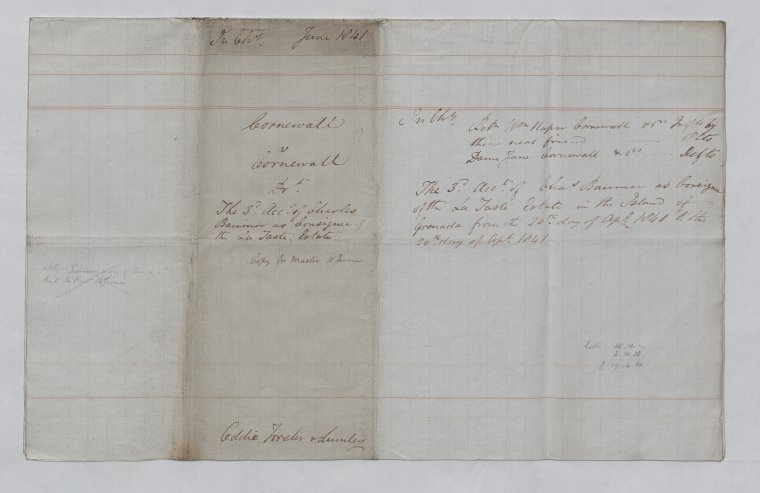 In Chy. June 1841
Cornewall
v
Cornewall
Dr.
The 3d. Acct. of Charles
Baumer as Consignee of
the La Taste Estate
Copy for Master 11 June
Oddie Forster & Lumley
In Chy.
Betn. Wm Cornewall & ors Infts by
their next friend Plts
Dame Jane Cornewall & ors Defts
The 3d. Acct. of Chas Baumer as Consignee
of the La Taste Estate in the Island of
Grenada from the 20th day of Apl. 1840 to the
20th day of Apl. 1841
£ 19.4.10